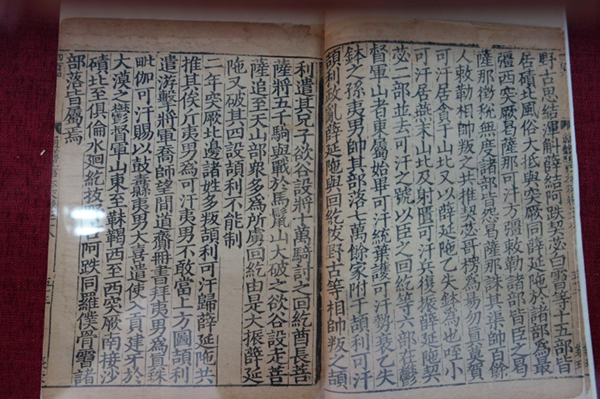 野古思結渾斛薛結阿跌契苾白霫等十五部皆
居磧北風俗大抵與突厥同薛延陁於諸部爲最
彊西突厥曷薩那可汗方彊敕勒諸部皆臣之曷
薩那徵稅無度諸部皆怨曷薩那誅其渠帥百餘
人敕勒相帥叛之共推契苾哥楞爲易勿真莫賀
可汗居貪于山北又以薛延陁乙失鉢爲也咥小
可汗居燕末山北及射匱可汗兵復振薛延陁契
苾二部並去可汗之號以臣之回紇等六部在鬱
督軍山者東屬始畢可汗統葉護可汗勢衰乙失
鉢之孫夷男帥其部落七萬餘家附于頡利可汗
頡利政亂薛延陁與回紇拔野古等相帥叛之頡
利遣其兄子欲谷設將十萬騎討之回紇酋長菩
薩將五千騎與戰於馬鬣山大破之欲谷設走菩
薩追至天山部衆多爲所虜回紇由是大振薛延
陁又破其四設頡利不能制
二年突厥北邊諸姓多叛頡利可汗歸薛延陁共
推其俟斤夷男爲可汗夷男不敢當上方圖頡利
遣游擊將軍喬師望間道齎冊書拜夷男爲真珠
毗伽可汗賜以鼓纛夷男大喜遣使入貢建牙於
大漠之鬱督軍山東至靺鞨西至西突厥南接沙
磧北至俱倫水迴紇拔野古阿跌同羅僕骨霫諸
部落皆屬焉